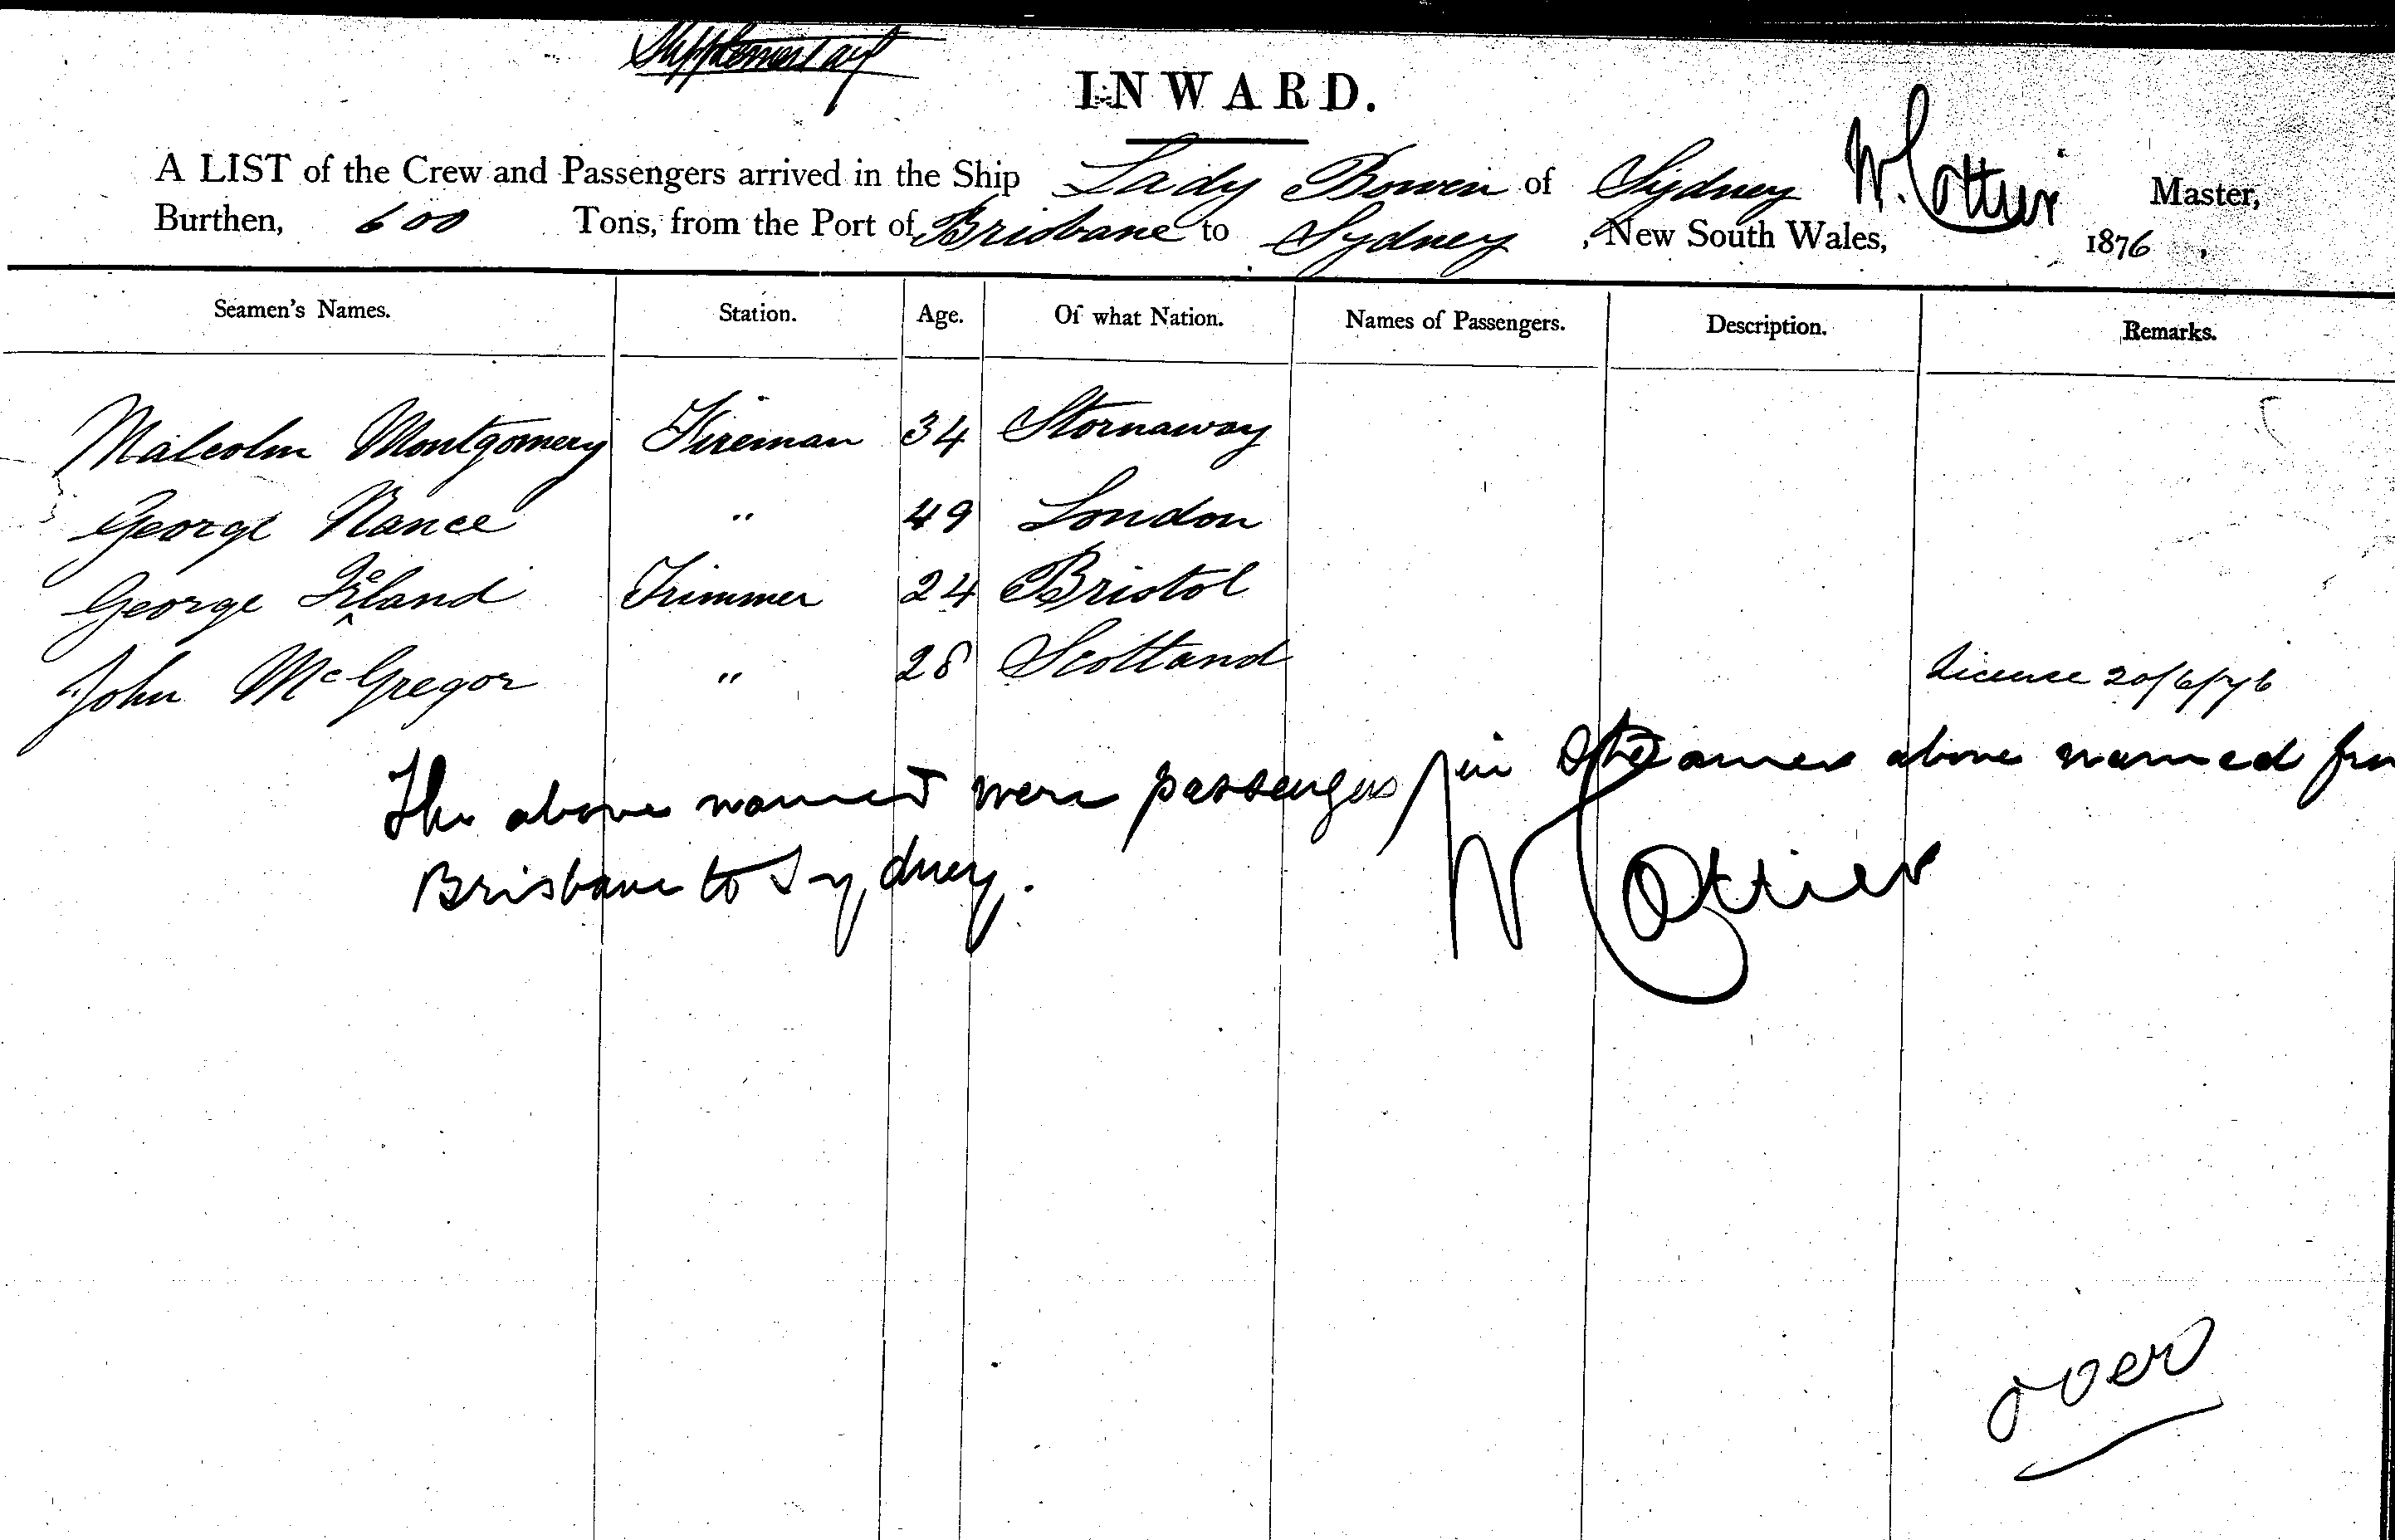 Supplementary
INWARD.
A LIST of the Crew and Passengers arrived in the Ship Lady Bowen of Sydney W. Cottier Master,
Burthen, 600 Tons, from the Port of Brisbane to Sydney, New South Wales, 1876
Seamen's Names. Station. Age. Of what Nation. Names of Passengers. Description. Remarks.
Malcolm Montgomery Fireman 34 Stornaway
George Nance " 49 London
George Ireland Trimmer 24 Bristol
John McGregor " 28 Scotland License 20/6/76
The above named were passengers in Steamer above named from
Brisbane to Sydney.
W Cottier
over